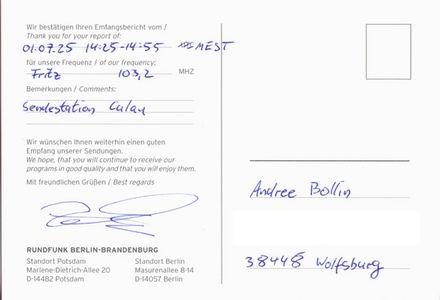 Wir bestätigen Ihren Empfangsbericht vom /
Thank you for your report of:
01.07.25 14:25-14:55 MEST
für unsere Frequenz / of our frequency:
Fritz 103,2 MHZ
Bemerkungen / Comments:
Sendestation Calau
Wir wünschen Ihnen weiterhin einen guten
Empfang unserer Sendungen.
We hope, that you will continue to receive our
programs in good quality and that you will enjoy them.
Mit freundlichen Grüßen / Best regards
RUNDFUNK BERLIN-BRANDENBURG
Standort Potsdam
Marlene-Dietrich-Allee 20
D-14482 Potsdam
Standort Berlin
Masurenallee 8-14
D-14057 Berlin
Andree Bollin
38448 Wolfsburg